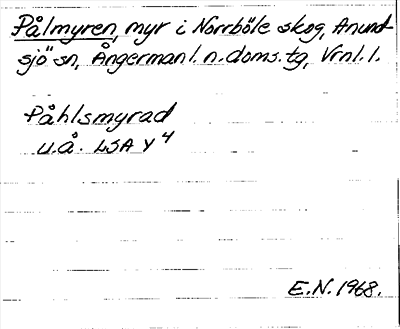 Pålmyren, myr i Norrböle skog, Anund-
sjö sn, Ångermanl. n. doms. tg, Vrnl. l.
Påhlsmyrad
u.å. LSA Y 4
E.N. 1968.